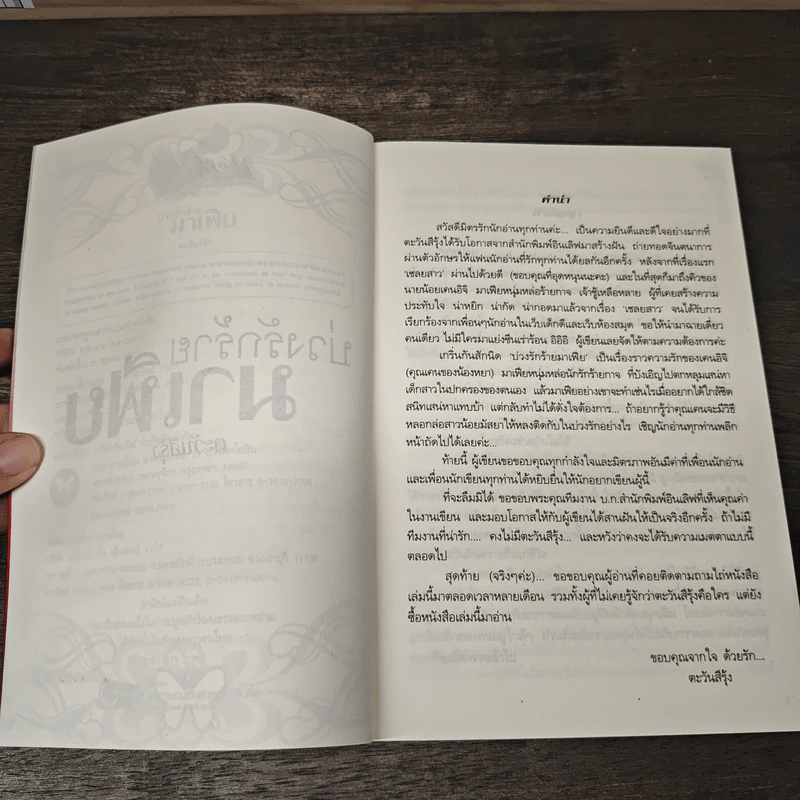 บ่วงรักร้าย
มาเฟีย
ตะวันสีรุ้ง
คำนำ
สวัสดีมิตรรักนักอ่านทุกท่านค่ะ... เป็นความยินดีและดีใจอย่างมากที่
ตะวันสีรุ้งได้รับโอกาสจากสำนักพิมพ์อินเลิฟมาสร้างฝัน ถ่ายทอดจินตนาการ
ผ่านตัวอักษรให้แฟนนักอ่านที่รักทุกท่านได้ยลกันอีกครั้ง หลังจากที่เรื่องแรก
'เชลยสาว' ผ่านไปด้วยดี (ขอบคุณที่อุดหนุนนะคะ) และในที่สุดก็มาถึงคิวของ
นายน้อยเคนอิจิ มาเฟียหนุ่มหล่อร้ายกาจ เจ้าชู้เหลือหลาย ผู้ที่เคยสร้างความ
ประทับใจ น่าหยิก น่ากัด น่ากอดมาแล้วจากเรื่อง 'เชลยสาว' จนได้รับการ
เรียกร้องจากเพื่อนๆนักอ่านในเว็บเด็กดีและเว็บห้องสมุด ขอให้นำมาฉายเดี่ยว
คนเดียว ไม่มีใครมาแย่งซีนเร่าร้อน อิอิอิ ผู้เขียนเลยจัดให้ตามความต้องการค่ะ
เกริ่นกันสักนิด 'บ่วงรักร้ายมาเฟีย' เป็นเรื่องราวความรักของเคนอิจิ
(คุณเคนของน้องหยา) มาเฟียหนุ่มหล่อนักรักร้ายกาจ ที่บังเอิญไปตกหลุมเสน่หา
เด็กสาวในปกครองของตนเอง แล้วมาเฟียอย่างเขาจะทำเช่นไรเมื่ออยากได้ใกล้ชิด
สนิทเสน่หาแทบบ้า แต่กลับทำไม่ได้ดั่งใจต้องการ... ถ้าอยากรู้ว่าคุณเคนจะมีวิธี
หลอกล่อสาวน้อยมัสยาให้หลงติดกับในบ่วงรักอย่างไร เชิญนักอ่านทุกท่านพลิก
หน้าถัดไปได้เลยค่ะ...
ท้ายนี้ ผู้เขียนขอขอบคุณทุกกำลังใจและมิตรภาพอันมีค่าที่เพื่อนนักอ่าน
และเพื่อนนักเขียนทุกท่านได้หยิบยื่นให้นักอยากเขียนผู้นี้
ที่จะลืมมิได้ ขอขอบพระคุณทีมงาน บ.ก.สำนักพิมพ์อินเลิฟที่เห็นคุณค่า
ในงานเขียน และมอบโอกาสให้กับผู้เขียนได้สานฝันให้เป็นจริงอีกครั้ง ถ้าไม่มี
ทีมงานที่น่ารัก.... คงไม่มีตะวันสีรุ้ง... และหวังว่าคงจะได้รับความเมตตาแบบนี้
ตลอดไป
สุดท้าย (จริงๆค่ะ)... ขอขอบคุณผู้อ่านที่คอยติดตามถามไถ่หนังสือ
เล่มนี้มาตลอดเวลาหลายเดือน รวมทั้งผู้ที่ไม่เคยรู้จักว่าตะวันสีรุ้งคือใคร แต่ยัง
ซื้อหนังสือเล่มนี้มาอ่าน
ขอบคุณจากใจ ด้วยรัก...
ตะวันสีรุ้ง